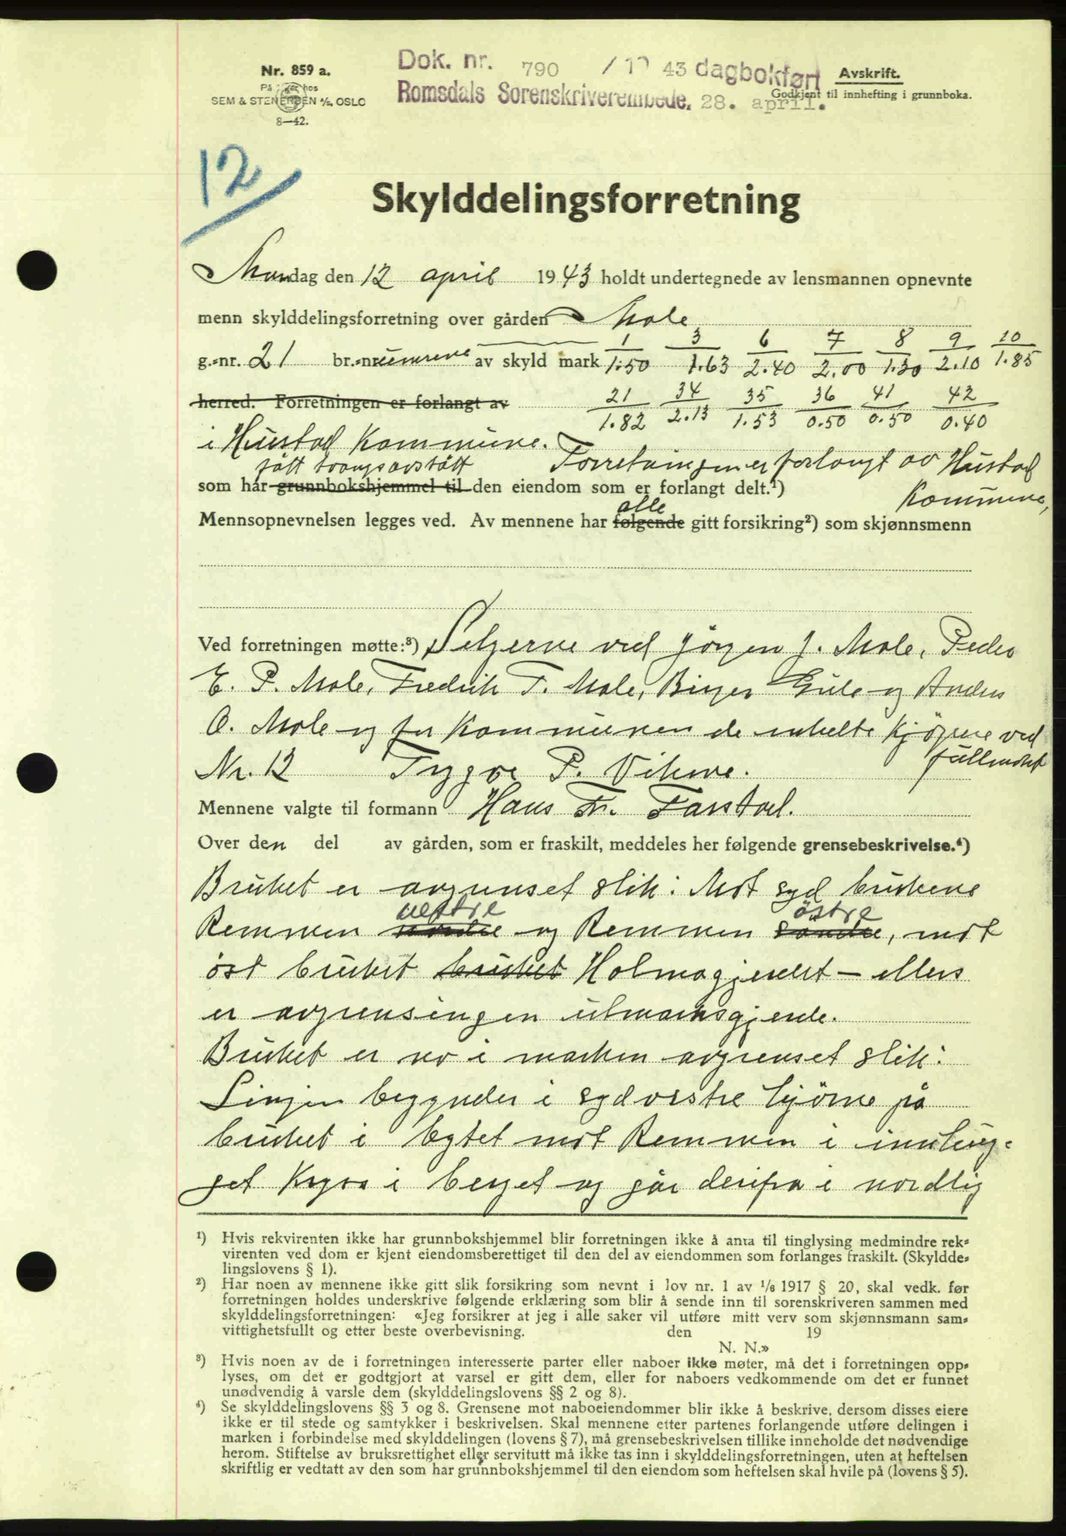 Nr. 859 a.
På lager hos
SEM & STENERSEN A/S, OSLO
8—42.
Dok. nr. 790 / 19 43 dagbokført
Romsdals Sorenskriverembede, 28. april.
Avskrift.
Godkjent til innhefting i grunnboka.
12
Skylddelingsforretning
Mandag den 12 april 1943 holdt undertegnede av lensmannen opnevnte
menn skylddelingsforretning over gården Male
g.-nr. 21 br.-nr. av skyld mark 1/1.50 3/1.63 6/2.40 7/2.00 8/1.30 9/2.10 10/1.85
herred. Forretningen er forlangt av 21/1.82 34/2.13 35/1.53 36/0.50 41/0.50 42/0.40
i Hustad Kommune. Forretningen er forlangt av Hustad
fått tvangsavstått
som har grunnbokshjemmel til den eiendom som er forlangt delt.¹) Kommune,
alle
Mennsopnevnelsen legges ved. Av mennene har følgende gitt forsikring²) som skjønnsmenn
Ved forretningen møtte:³) Selgerne ved Jørgen J. Male, Peder
E. P. Male, Fredrik T. Male, Birger Gule og Anders
O. Male og for Kommunen de enkelte kjøpere ved
fullmakt
Nr. 12 Trygve P. Vikene.
Mennene valgte til formann Hans Fr. Farstad.
Over den del av gården, som er fraskilt, meddeles her følgende grensebeskrivelse.⁴)
Bruket er avgrenset slik: Mot syd brukene
vestre østre
Remmen nordre og Remmen søndre, mot
øst bruket bruket Holmagjerdet – ellers
er avgrensingen utmarksgjerde.
Bruket er no i marken avgrenset slik:
Linjen begynder i sydvestre hjørne på
bruket i bytet mot Remmen i innhug-
get kryss i berget og går derifra i nordlig
¹) Hvis rekvirenten ikke har grunnbokshjemmel blir forretningen ikke å anta til tinglysing medmindre rek-
virenten ved dom er kjent eiendomsberettiget til den del av eiendommen som forlanges fraskilt. (Skyldde-
lingslovens § 1).
²) Har noen av mennene ikke gitt slik forsikring som nevnt i lov nr. 1 av ¹/₆ 1917 § 20, skal vedk. før
forretningen holdes underskrive følgende erklæring som blir å sende inn til sorenskriveren sammen med
skylddelingsforretningen: «Jeg forsikrer at jeg i alle saker vil utføre mitt verv som skjønnsmann sam-
vittighetsfullt og etter beste overbevisning. den 19
N. N.»
³) Hvis noen av de i forretningen interesserte parter eller naboer ikke møter, må det i forretningen opp-
lyses, om det er godtgjort at varsel er gitt dem, eller for naboers vedkommende om det er funnet
unødvendig å varsle dem (skylddelingslovens §§ 2 og 8).
⁴) Se skylddelingslovens §§ 3 og 8. Grensene mot naboeiendommer blir ikke å beskrive, dersom disses eiere
ikke er til stede og samtykker i beskrivelsen. Skal mennene etter partenes forlangende utføre delingen i
marken i forbindelse med skylddelingen (lovens § 7), må grensebeskrivelsen tillike inneholde det nødvendige
herom. Stiftelse av bruksrettighet eller servitutt må ikke tas inn i skylddelingsforretningen, uten at heftelsen
skriftlig er vedtatt av den som har grunnbokshjemmel til den eiendom som heftelsen skal hvile på (lovens § 5).